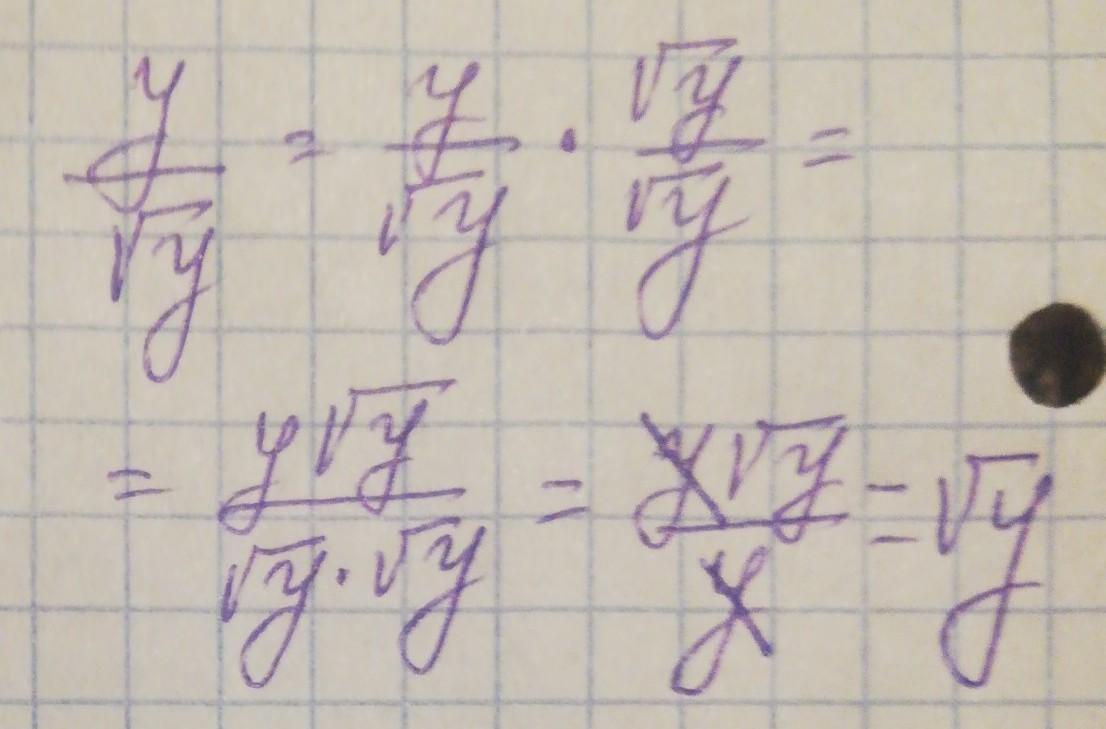 y/√y = y/√y · √y/√y =
= y√y/√y·√y = y√y/y = √y